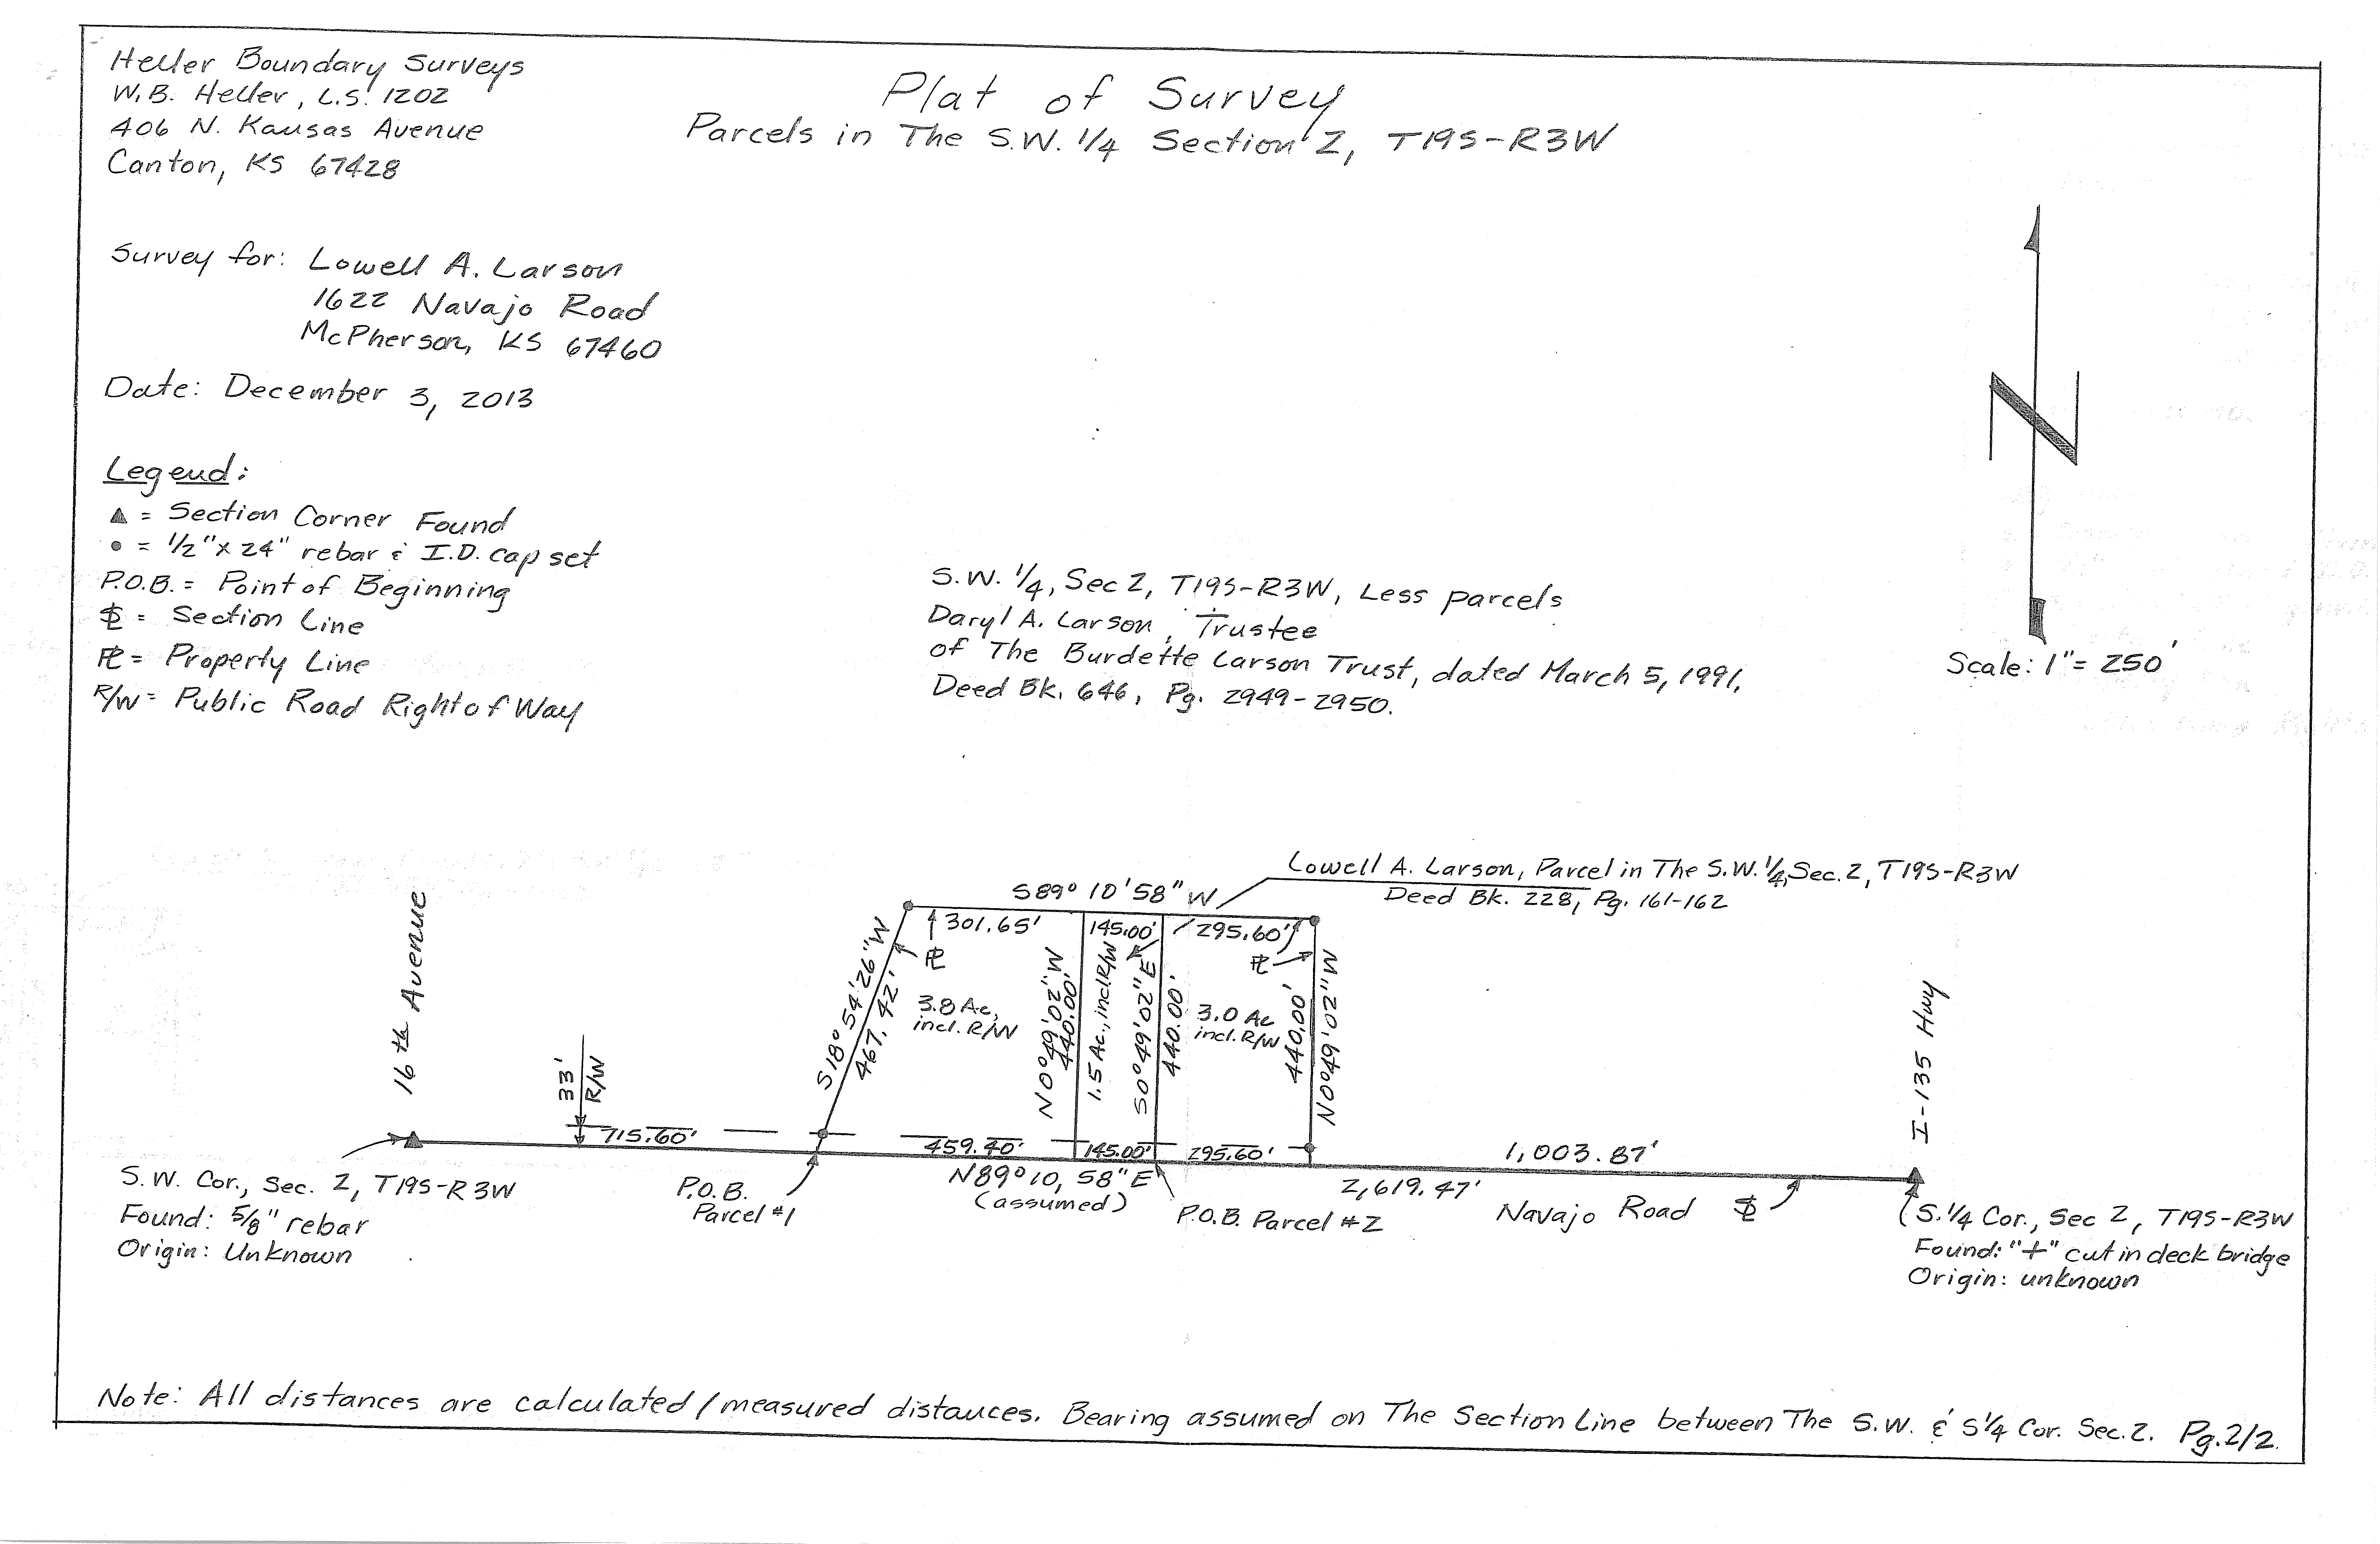 Heller Boundary Surveys
W.B. Heller, L.S. 1202
406 N. Kansas Avenue
Canton, KS 67428
Plat of Survey
Parcels in The S.W. 1/4 Section 2, T19S-R3W
Survey for: Lowell A. Larson
1622 Navajo Road
McPherson, KS 67460
Date: December 3, 2013
Legend:
▲ = Section Corner Found
• = 1/2" x 24" rebar & I.D. cap set
P.O.B. = Point of Beginning
SL = Section Line
PL = Property Line
R/W = Public Road Right of Way
N
Scale: 1" = 250'
S.W. 1/4, Sec 2, T19S-R3W, Less parcels
Daryl A. Larson, Trustee
of The Burdette Larson Trust, dated March 5, 1991.
Deed Bk. 646, Pg. 2949-2950.
Lowell A. Larson, Parcel in The S.W. 1/4, Sec. 2, T19S-R3W
Deed Bk. 228, Pg. 161-162
S89° 10' 58" W
301.65'
145.00'
295.60'
PL
PL
16th Avenue
33'
R/W
S18° 54' 26" W
467.42'
3.8 Ac,
incl. R/W
N0° 49' 02" W
440.00'
1.5 Ac., incl R/W
S0° 49' 02" E
440.00'
3.0 Ac
incl. R/W
440.00'
N0° 49' 02" W
I-135 Hwy
715.60'
459.40'
145.00'
295.60'
1,003.87'
N89° 10, 58" E
(assumed)
2,619.47'
Navajo Road
SL
P.O.B.
Parcel #1
P.O.B. Parcel #2
S.W. Cor., Sec. 2, T19S-R3W
Found: 5/8" rebar
Origin: Unknown
S. 1/4 Cor., Sec 2, T19S-R3W
Found: "+" cut in deck bridge
Origin: unknown
Note: All distances are calculated/measured distances. Bearing assumed on The Section Line between The S.W. & S 1/4 Cor. Sec. 2. Pg. 2/2.